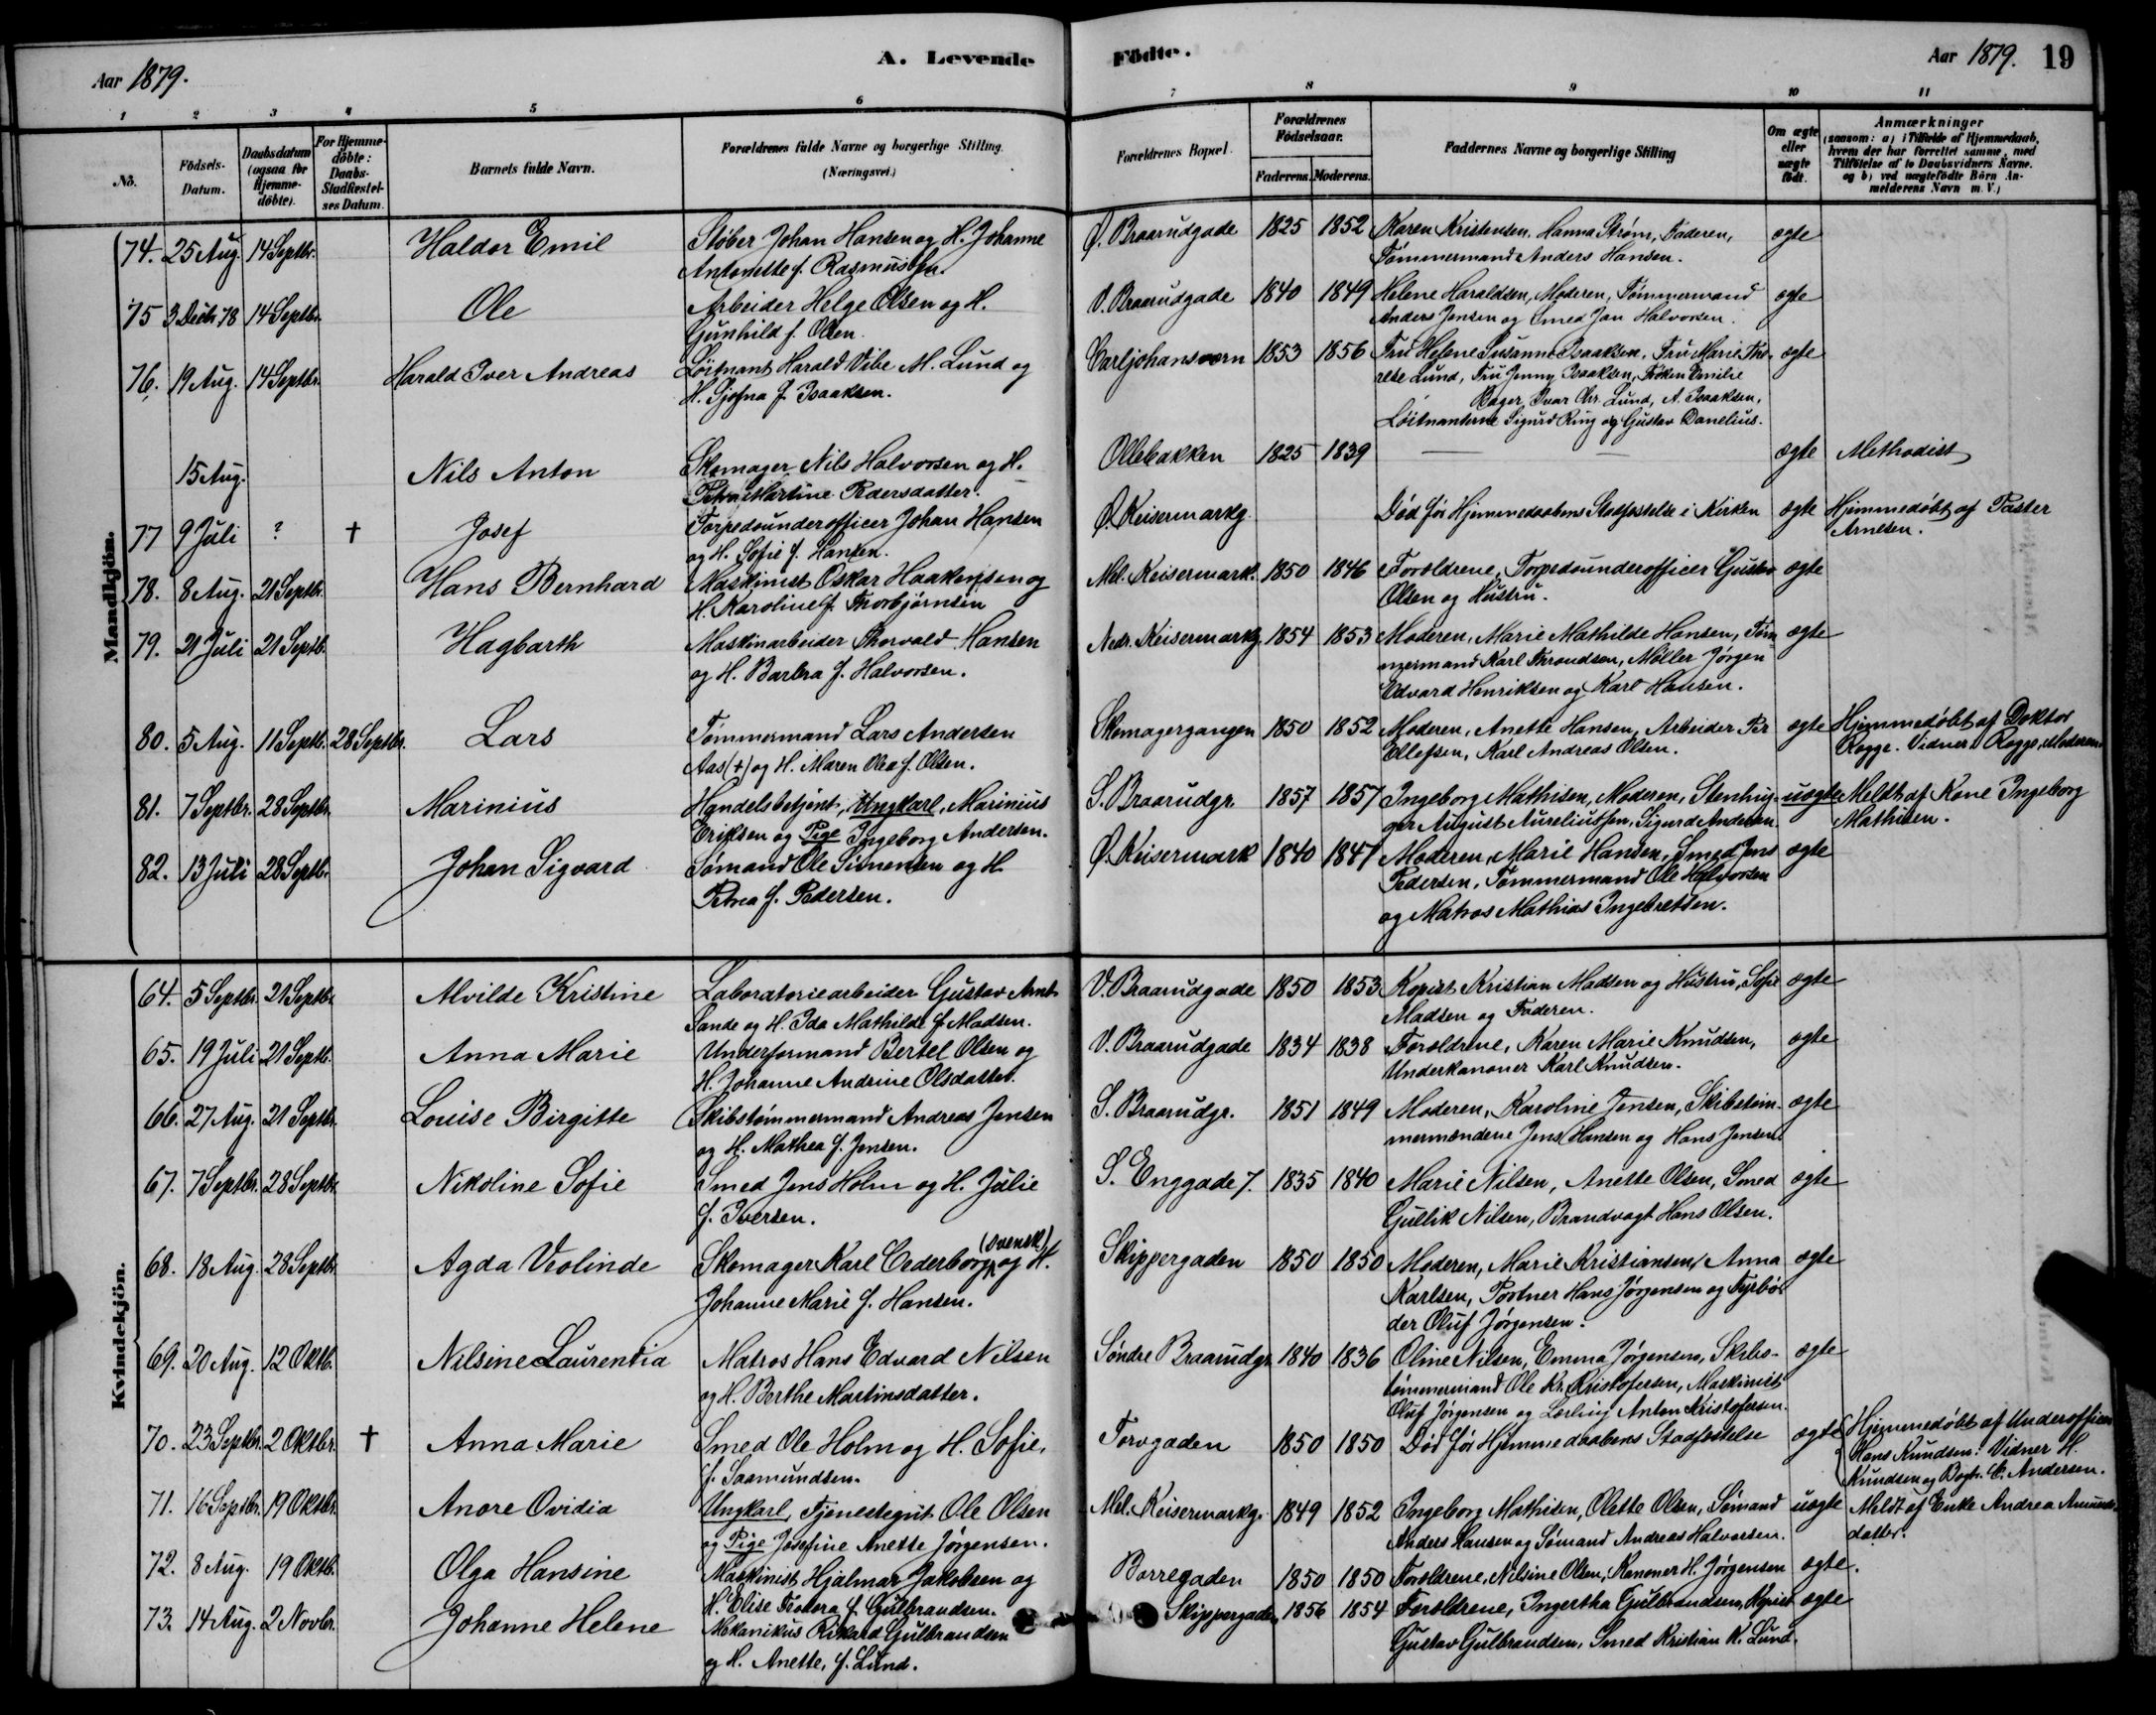 Aar 1879.
A. Levende
Födte.
Aar 1879. 19
1 2 3 4 5 6 7 8 9 10 11
No.
Födsels-Datum.
Daabsdatum (ogsaa for Hjemme-döbte).
For Hjemme-döbte: Daabs-Stadfæstel-ses Datum.
Barnets fulde Navn.
Forældrenes fulde Navne og borgerlige Stilling. (Næringsvei.)
Forældrenes Bopæl.
Forældrenes Födselsaar.
Faderens. Moderens.
Faddernes Navne og borgerlige Stilling
Om ægte eller uægte födt.
Anmærkninger (saasom: a) i Tilfælde af Hjemmedaab, hvem der har forrettet samme, med Tilföielse af to Daabsvidners Navne, og b) ved uægtefödte Börn An-melderens Navn m. V.)
Mandkjön.
74. 25 Aug. 14 Septbr. Haldor Emil Støber Johan Hansen og H. Johanne Ø. Braarudgade 1825 1852 Karen Kristensen, Hanna Strøm, Faderen, ægte
Antonette f. Rasmussen. Tømmermand Anders Hansen.
75 3 Decbr. 78 14 Septbr. Ole Arbeider Helge Olsen og H. V. Braarudgade 1840 1849 Helene Haraldsen, Moderen, Tømmermand ægte
Gunhild f. Olsen. Anders Jensen og Smed Jan Halvorsen.
76. 19 Aug. 14 Septbr. Harald Iver Andreas Løitnant Harald Vibe M. Lund og Carljohansværn 1853 1856 Fru Helene Susanne Isaaksen, Fru Marie The- ægte
H. Gjøfna f. Isaaksen. rese Lund, Fru Jenny Isaaksen, Frøken Emilie
Bager, Ivar Chr. Lund, A. Isaaksen,
Løitnanterne Sigurd Ring og Gustav Danelius.
15 Aug. Nils Anton Skomager Nils Halvorsen og H. Ollebakken 1825 1839 — — ægte Methodist
Petra Martine Pedersdatter.
77 9 Juli ? † Josef Torpedounderofficer Johan Hansen Ø. Keisermarkg. Død før Hjemmedaabens Stadfæstelse i Kirken ægte Hjemmedøbt af Pastor
og H. Sofie f. Hansen. Arnesen.
78. 8 Aug. 21 Septbr. Hans Bernhard Maskinist Oskar Haakensen og Mel. Keisermark. 1850 1846 Forældrene, Torpedounderofficer Gustav ægte
H. Karoline f. Thorbjørnsen Olsen og Hustru.
79. 21 Juli 21 Septb. Hagbarth Maskinarbeider Thorvald Hansen Nedr. Keisermarkg. 1854 1853 Moderen, Marie Mathilde Hansen, Tøm- ægte
og H. Barbra f. Halvorsen. mermand Karl Throndsen, Møller Jørgen
Edvard Henriksen og Karl Hansen.
80. 5 Aug. 11 Septb. 28 Septbr. Lars Tømmermand Lars Andersen Skomagergangen 1850 1852 Moderen, Anette Hansen, Arbeider Per ægte Hjemmedøbt af Doktor
Aas (+) og H. Maren Olea f. Olsen. Ellefsen, Karl Andreas Olsen. Rogge. Vidner: Rogge, Moderen.
81. 7 Septbr. 28 Septbr. Marinius Handelsbetjent, Ungkarl, Marinius S. Braarudgr. 1857 1857 Ingeborg Mathisen, Moderen, Stenhug- uægte Meldt af Kone Ingeborg
Eriksen og Pige Ingeborg Andersen. ger August Aureliussen, Sigurd Andersen. Mathisen.
82. 13 Juli 28 Septb. Johan Sigvard Sømand Ole Simensen og H. Ø. Keisermark 1840 1847 Moderen, Marie Hansen, Smed Jens ægte
Petrea f. Pedersen. Pedersen, Tømmermand Ole Halvorsen
og Matros Mathias Ingebretsen.
Kvindekjön.
64. 5 Septbr. 21 Septbr. Alvilde Kristine Laboratoriearbeider Gustav Arnt V. Braarudgade 1850 1853 Kopist Kristian Madsen og Hustru, Sofie ægte
Sande og H. Ida Mathilde f. Madsen. Madsen og Faderen.
65. 19 Juli 21 Septb. Anna Marie Underformand Bertel Olsen og V. Braarudgade 1834 1838 Forældrene, Karen Marie Knudsen, ægte
H. Johanne Andrine Olsdatter. Underkanoner Karl Knudsen.
66. 27 Aug. 21 Septbr. Louise Birgitte Skibstømmermand Andreas Jensen S. Braarudgr. 1851 1849 Moderen, Karoline Jensen, Skibstøm- ægte
og H. Mathea f. Jensen. mermændene Jens Hansen og Hans Jensen.
67. 7 Septbr. 28 Septbr. Nikoline Sofie Smed Jens Holm og H. Julie S. Enggade 7. 1835 1840 Marie Nilsen, Anette Olsen, Smed ægte
f. Iversen. Gullik Nilsen, Brandvagt Hans Olsen.
68. 18 Aug. 28 Septbr. Agda Veolinde Skomager Karl Cederborg (svensk) og H. Skippergaden 1850 1850 Moderen, Marie Kristiansen, Anna ægte
Johanne Marie f. Hansen. Karlsen, Portner Hans Jørgensen og Fyrbø-
der Oluf Jørgensen.
69. 20 Aug. 12 Oktb. Nilsine Laurentia Matros Hans Edvard Nilsen Søndre Braarudgr. 1840 1836 Oline Nilsen, Emma Jørgensen, Skibs- ægte
og H. Berthe Martinsdatter. tømmermand Ole Kr. Kristofersen, Maskinist
Oluf Jørgensen og Lærling Anton Kristofersen.
70. 23 Septbr. 2 Oktbr. † Anna Marie Smed Ole Holm og H. Sofie, Torvgaden 1850 1850 Død før Hjemmedaabens Stadfæstelse ægte Hjemmedøbt af Underofficer
f. Saamundsen. Hans Knudsen. Vidner H.
Knudsen og Bagr. C. Andersen.
71. 16 Septbr. 19 Oktbr. Anore Ovidia Ungkarl, Tjenestegut Ole Olsen Mel. Keisermarkg. 1849 1852 Ingeborg Mathisen, Olette Olsen, Sømand uægte Meldt af Enke Andrea Amunds-
og Pige Josefine Anette Jørgensen. Anders Hansen og Sømand Andreas Halvorsen. datter.
72. 8 Aug. 19 Oktb. Olga Hansine Maskinist Hjalmar Jakobsen og Borregaden 1850 1850 Forældrene, Nilsine Olsen, Kanoner H. Jørgensen ægte.
H. Elise Teodora f. Gulbrandsen.
73. 14 Aug. 2 Novbr. Johanne Helene Mekanikus Rikard Gulbrandsen Skippergaden 1856 1854 Forældrene, Ingertha Gulbrandsen, Kopist ægte
og H. Anette, f. Lund. Gustav Gulbrandsen, Smed Kristian K. Lund.